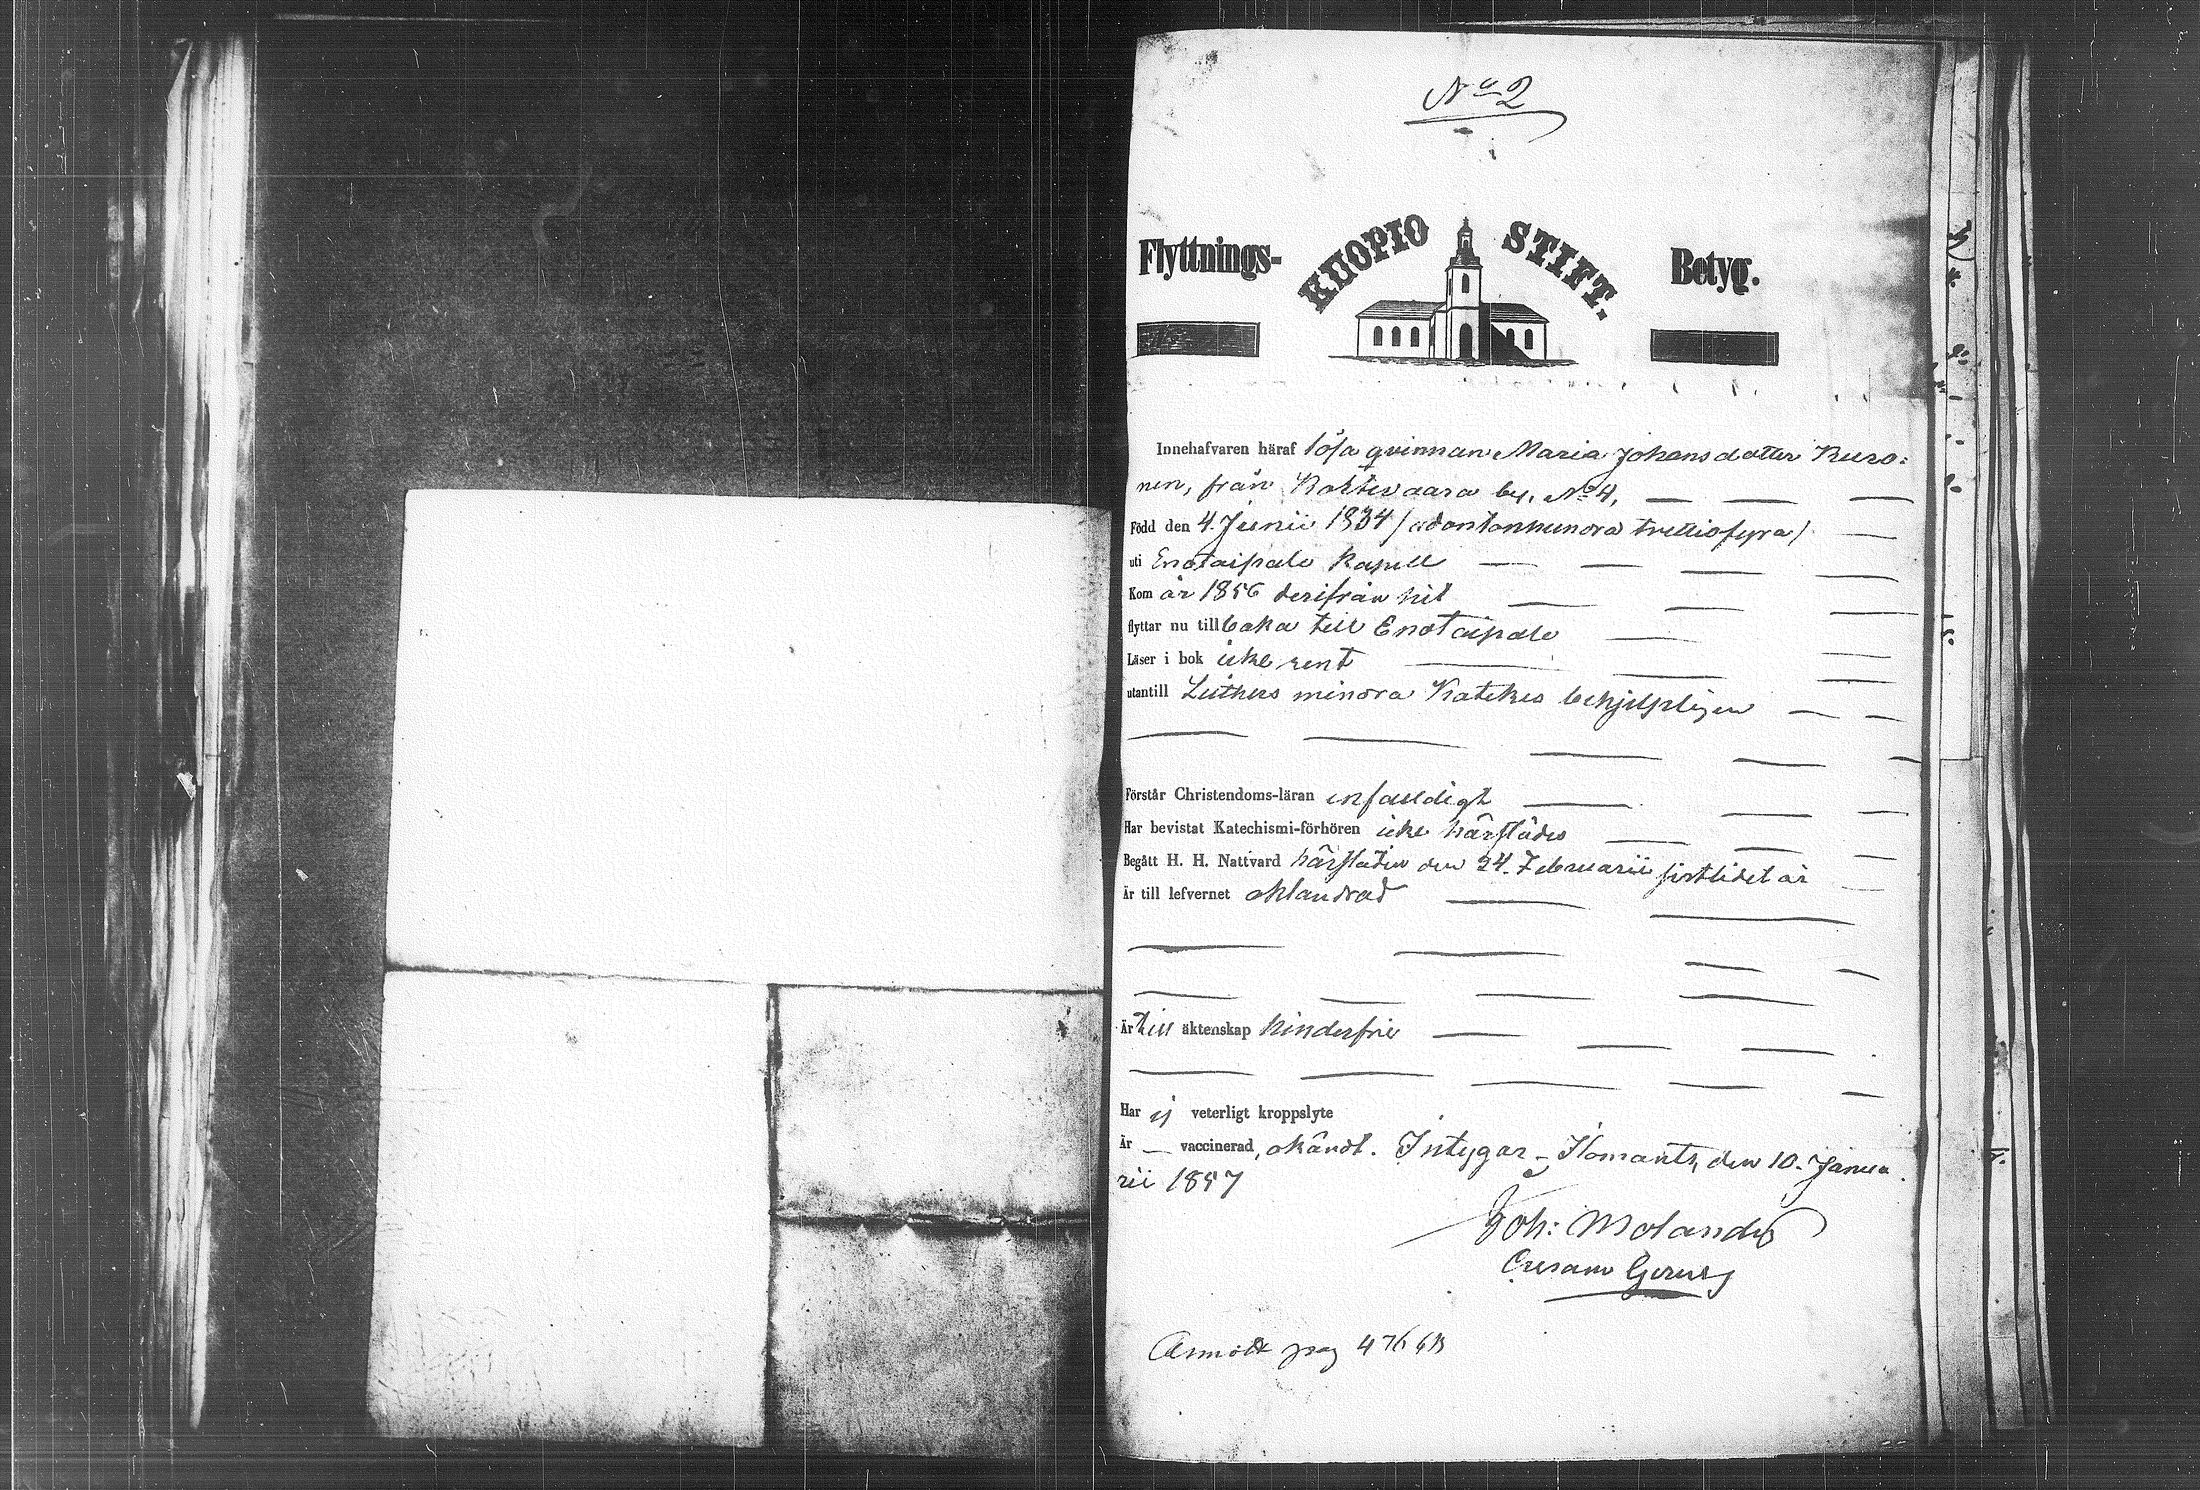 No 2
Flyttnings- KUOPIO STIFT. Betyg.
Innehafvaren häraf lösa qvinnan Maria Johansdotter Kuro=
nen, från Koktevaara by, No 4,
Född den 4. Junii 1834 / adertonhundra trettiofyra /
uti Enotaipale Kapell
Kom år 1856 derifrån hit
flyttar nu tillbaka till Enotaipale
Läser i bok icke rent
utantill Luthers mindra Kateches behjelpligen
Förstår Christendoms-läran enfaldigt
Har bevistat Katechismi-förhören icke härstädes
Begått H. H. Nattvard härstädes den 24. Februarii sistlidet år
Är till lefvernet oklandrad
Är till äktenskap hinderfri
Har ej veterligt kroppslyte
Är — vaccinerad, okändt. Intygar – Ilomants, den 10. Janua
rii 1857
Joh: Molander
pag 476